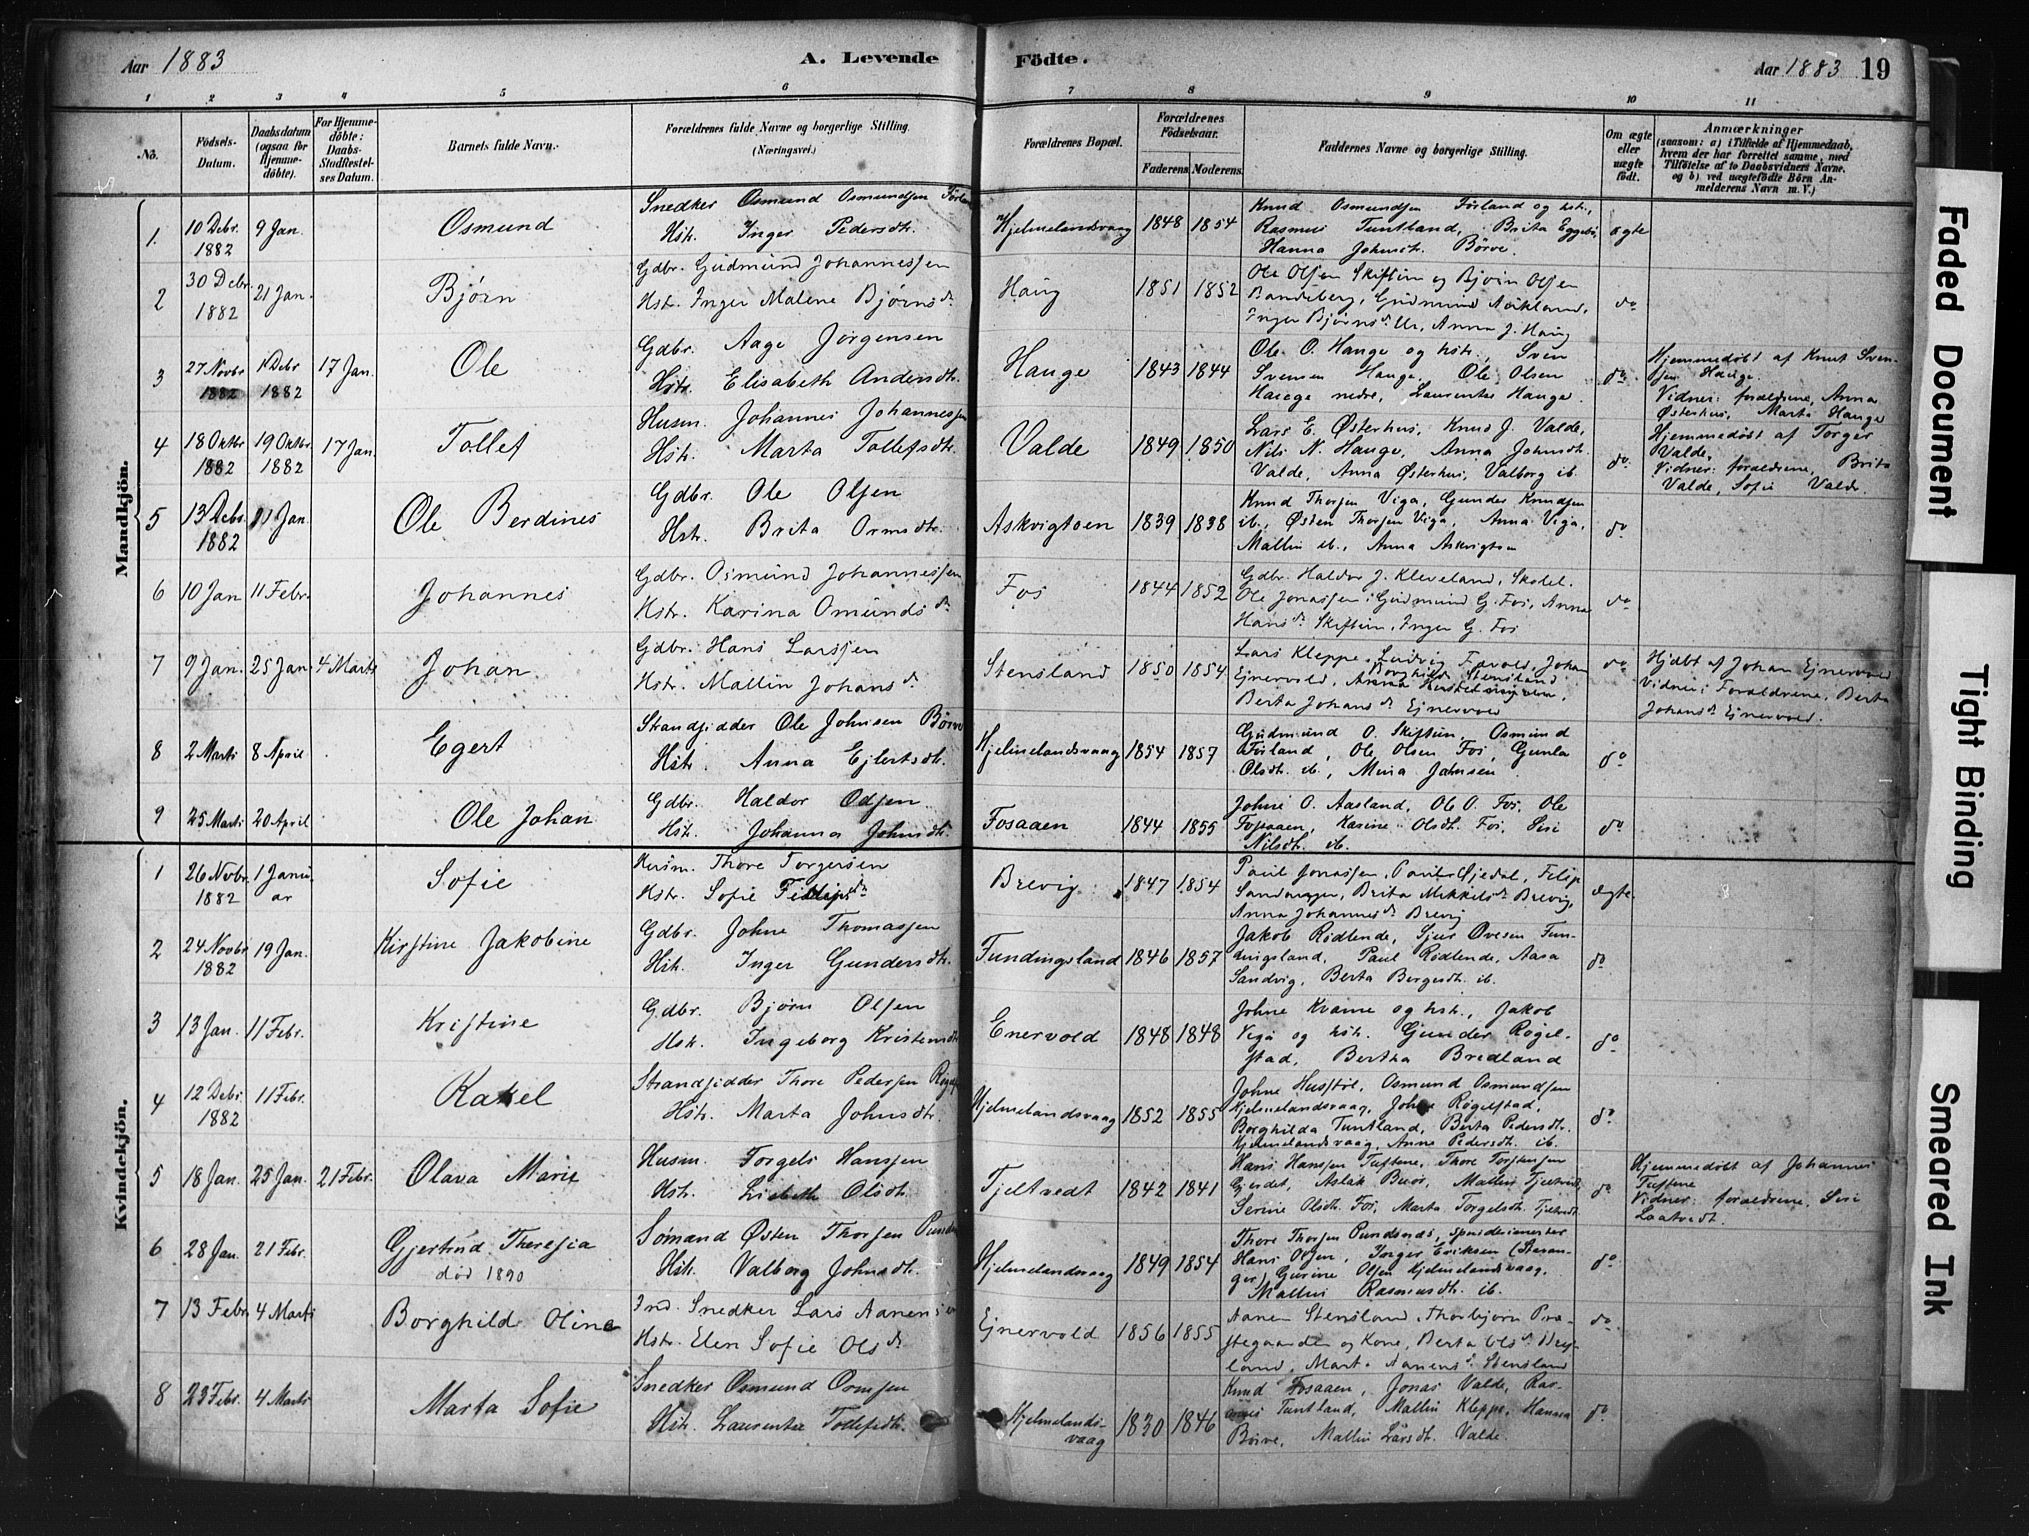 Aar 1883
A. Levende
Födte.
Aar 1883 19
1 2 3 4 5 6 7 8 9 10 11
No.
Födsels-Datum.
Daabsdatum (ogsaa for Hjemmedöbte).
For Hjemmedöbte: Daabs-Stadfestelses Datum.
Barnets fulde Navn.
Forældrenes fulde Navne og borgerlige Stilling. (Næringsvei.)
Forældrenes Bopæl.
Forældrenes Födselsaar.
Faderens Moderens
Faddernes Navne og borgerlige Stilling.
Om ægte eller uægte födt.
Anmærkninger
(saasom: a) i Tilfælde af Hjemmedaab, hvem der har forrettet samme, med Tilföielse af to Daabsvidners Navne, og b) ved uægtefödte Börn Anmelderens Navn m. V.)
Mandkjön.
1. 10 Debr. 1882 9 Jan. Osmund
Snedker Osmund Osmundsen
Hst. Inger Pedersdtr.
Hjelmelandsvaag 1848 1854
Knud Osmundsen Førland og hst.,
Rasmus Tuntland, Brita
Hanna Johnsdt. Børve.
ægte
2 30 Debr. 1882 21 Jan. Bjørn
Gdbr. Gudmund Johannessen
Hstr. Inger Malene Bjørnsdr
Haug 1851 1852
Ole Olsen Skiftun og Bjørn Olsen
Gudmund
Inger Bjørnsdr Ur, Anna J. Haug
do
3 27 Novbr 1882 1 Debr 1882 17 Jan. Ole
Gdbr. Aage Jørgensen
Hstr. Elisabeth Andersdtr.
Hauge 1843 1844
Ole O. Hauge og hst., Sven
Svensen Hauge, Ole Olsen
Hauge nedre, Laurentse Hauge.
do
Hjemmedøbt af Knut Svensen Hauge.
Vidner: forældrene, Anna
Østerhus, Marta Hauge
4 18 Oktbr 1882 19 Oktbr 1882 17 Jan. Tollef
Husm. Johannes Johannessen
Hst. Marta Tollefsdtr.
Valde 1849 1850
Lars E. Østerhus, Knud J. Valde,
Nils N. Hauge, Anna Johnsdt.
Valde, Anna Østerhus, Valborg ib.
do
Hjemmedøbt af Torger
Valde,
Vidner: forældrene, Brita
Valde, Sofie Valde.
5 13 Debr. 1882 Jan. Ole Berdines
Gdbr. Ole Olsen
Hst. Brita Ormsdtr.
Askvigtoen 1839 1838
Knud Thorsen Viga, Gunder Knudsen
ib., Østen Thorsen Viga, Anna Viga,
Mallin ib., Anna Askvigtoen
do
6 10 Jan 11 Febr. Johannes
Gdbr. Osmund Johannessen
Hstr. Karina Omundsdr
Fos 1844 1852
Gdbr. Haldor J. Kleveland, Skolel.
Ole Jonassen, Gudmund G. Fos, Anna
Hansdr Skiftun, Inger G. Fos
do
7 9 Jan. 25 Jan 4 Marts Johan
Gdbr. Hans Larssen
Hstr. Mallin Johansdr
Stensland 1850 1854
Lars Kleppe, Ludvig Johan
Ejnervold, Anna Borghild Stensland
Berta Johansdr Ejnervold
do
Hjdbt af Johan Ejnervold
Vidner: Forældrene, Berta
Johansdr Ejnervold.
8 2 Marts 8 April Egert
Strandsidder Ole Johnsen Børve
Hst. Anna Ejlertsdt.
Hjelmelandsvaag 1854 1857
Gudmund O. Skiftun, Osmund
Førland, Ole Olsen Fos, Gunla
Olsdt. ib, Mina Johnsen
do
9 25 Marts 20 April Ole Johan
Gdbr. Haldor Odsen
Hst. Johanna Johnsdt.
Fosaaen 1844 1855
Johne O. Aasland, Ole O. Fos, Ole
Fosaaen, Karine Olsdt. Fos, Siri
Nilsdt. ib.
do
Kvindekjön.
1 26 Novbr. 1882 1 Januar Sofie
Husm. Thore Torgersen
Hst. Sofie
Brevig 1847 1854
Paul Jonassen, Filip
Brita Mikkelsdr Brevig,
Anna Johannesdr Brevig
ægte
2 24 Novbr 1882 19 Jan. Kirstine Jakobine
Gdbr. Johne Thomassen
Hst. Inger Gundersdt.
Fundingsland 1846 1857
Jakob Rødlende, Sjur Øvesen Fundingsland, Paul Rødlende, Aasa
Sandvig, Berta Borgesdt. ib.
do
3 13 Jan. 11 Febr. Kristine
Gdbr. Bjørn Olsen
Hst. Ingeborg Kristensdt.
Enervold 1848 1848
Johne Kvame og hst., Jakob
Viga og hst. Gunder Røgelstad, Bertha Bredland
do
4 12 Debr. 1882 11 Febr. Rakel
Strandsidder Thore Pedersen
Hst. Marta Johnsdtr.
Hjelmelandsvaag 1852 1855
Johne Husstøl, Osmund Osmundsen
Hjelmelandsvaag, Johne Røgelstad,
Borghilda Tuntland, Berta Pedersdt.
Hjelmelandsvaag, Anne Pedersdt. ib.
do
5 18 Jan. 25 Jan. 21 Febr. Olava Marie
Husm. Torgels Hansen
Hst. Lisbeth Olsdt.
Tjeltvedt 1842 1841
Hans Hansen Tuftene, Thore Torstensen
Gjerdet, Aslak Buør, Mallin Tjeltvedt,
Serine Olsdt. Fos, Marta Torgelsdt. Tjeltvedt
do
Hjemmedøbt af Johannes
Tuftene
Vidner: forældrene, Siri
Laatvedt.
6 28 Jan. 21 Febr. Gjertrud Theresia
død 1890
Sømand Østen Thorsen
Hst. Valborg Johnsdt.
Hjelmelandsvaag 1849 1854
Thore Thorsen Pundsnes,
Hans Olsen, Inger Eriksen (Stavanger), Gurine Olsen Hjelmelandsvaag,
Mallin Rasmusdt. ib.
do
7 13 Febr 4 Marts Borghild Oline
Ind. Snedker Lars Aanensen
Hstr. Elen Sofie Olsdr
Ejnervold 1856 1855
Aanen Stensland, Thorbjørn Præstegaarden og Kone, Berta Olsdr
Marta Aanensdr Stensland
do
8 23 Febr. 4 Marts Marta Sofie
Snedker Osmund Ormsen
Hst. Laurentse Tollefsdt.
Hjelmelandsvaag 1830 1846
Knud Fosaaen, Jonas Valde, Rasmus Tuntland, Mallin Kleppe, Hanna
Børve, Mallin Larsdt. Valde.
do
Faded Document
Tight Binding
Smeared Ink